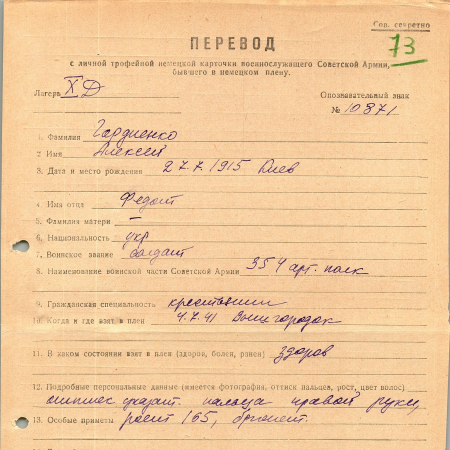 Сов. секретно
73
ПЕРЕВОД
с личной трофейной немецкой карточки военнослужащего Советской Армии,
бывшего в немецком плену.
Лагерь XД
Опознавательный знак
№ 10871
1. Фамилия Гордиенко
2. Имя Алексей
3. Дата и место рождения 27.7.1915 Киев
4. Имя отца Федот
5. Фамилия матери —
6. Национальность укр
7. Воинское звание солдат
8. Наименование воинской части Советской Армии 354 арт. полк
9. Гражданская специальность крестьянин
10. Когда и где взят в плен 4.7.41
11. В каком состоянии взят в плен (здоров, болен, ранен) здоров
12. Подробные персональные данные (имеется фотография, оттиск пальцев, рост, цвет волос)
оттиск указат. пальца правой руки,
13. Особые приметы рост 165, брюнет.